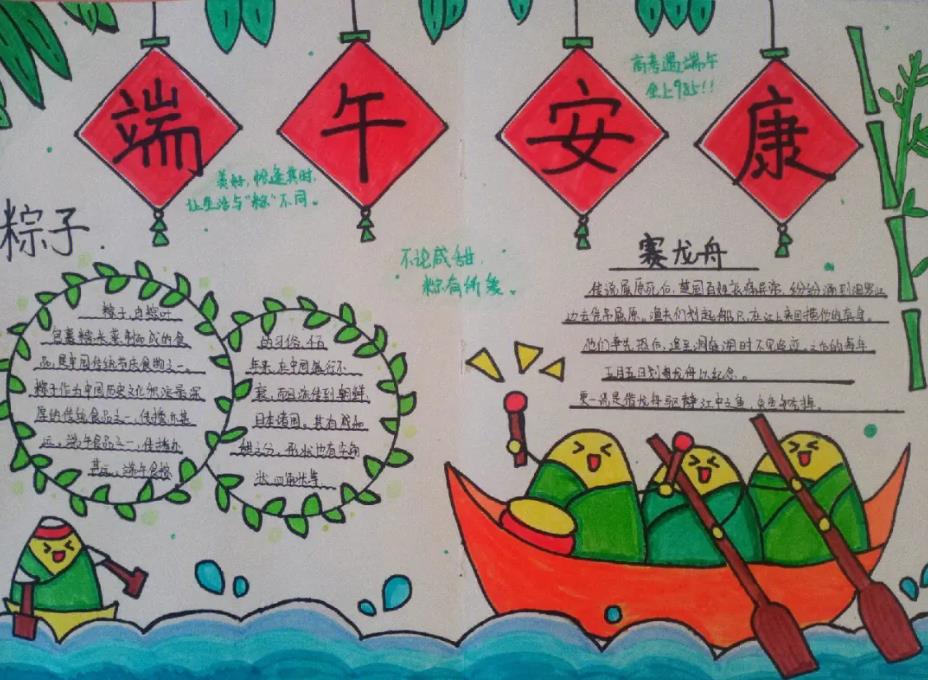 端午安康
高考遇端午
金上985!!
美好,恰逢其时,
让生活与“粽”不同。
粽子.
不论咸甜
粽有所爱。
赛龙舟
传说屈原死后,楚国百姓哀痛异常,纷纷涌到汨罗江
边去凭吊屈原。渔夫们划起船只,在江上来回捞他的真身。
他们争先恐后,追至洞庭湖时不见踪迹,之后每年
五月五日划龙舟以纪念。
更一说是借龙舟驱
江中之鱼,
粽子,由粽叶
包裹糯米蒸制而成的食
品,是中国传统节庆食物之一。
粽子作为中国历史文化积淀最深
厚的传统食品之一,传播亦甚
远。端午食品之一,传播亦
甚远。端午食粽
的习俗,千百
年来,在中国盛行不
衰,而且流传到朝鲜,
日本诸国。其有咸和
甜之分。形状也有三角
状,四角状等